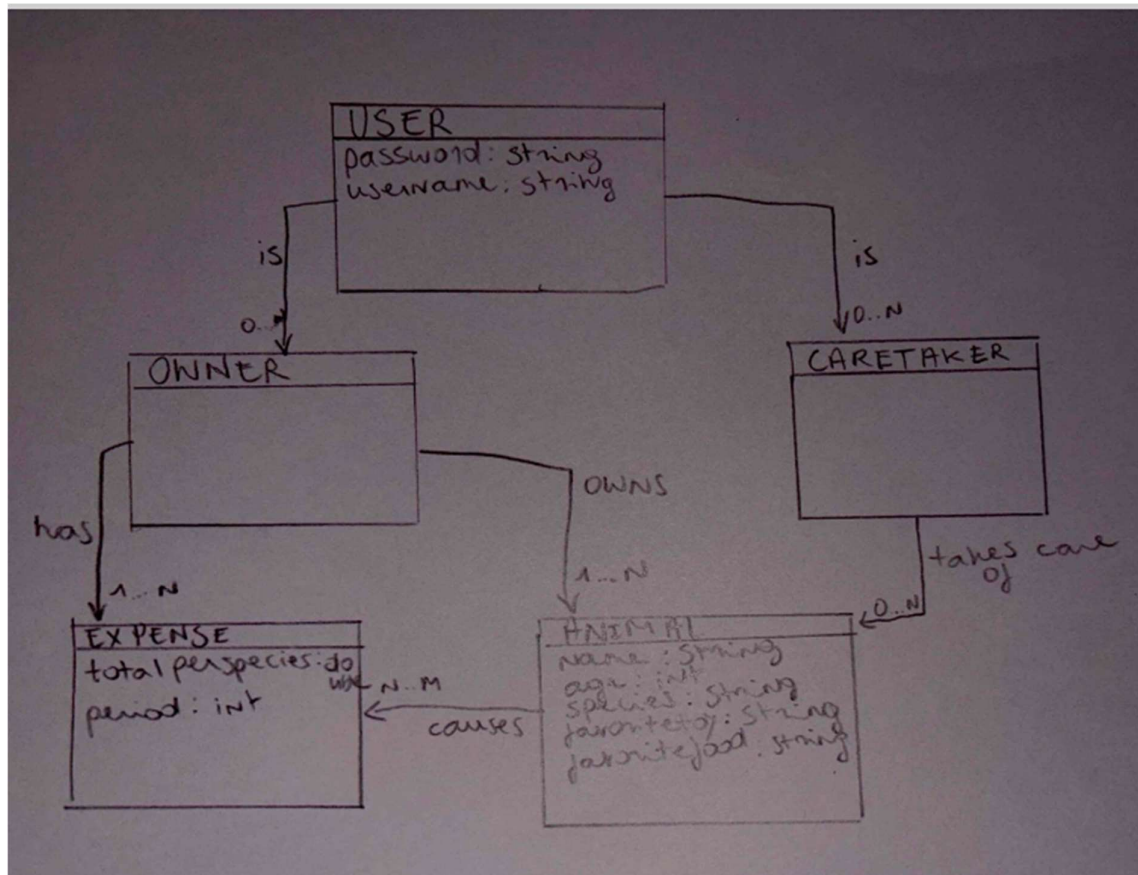 USER
password: string
username: string
is
is
0...
0..N
OWNER
CARETAKER
owns
has
takes care
of
1...N
1...N
0...N
EXPENSE
total perspecies: do
uble
period: int
N...M
causes
ANIMAL
name: string
age: int
species: string
favoritetoy: string
favoritefood: string